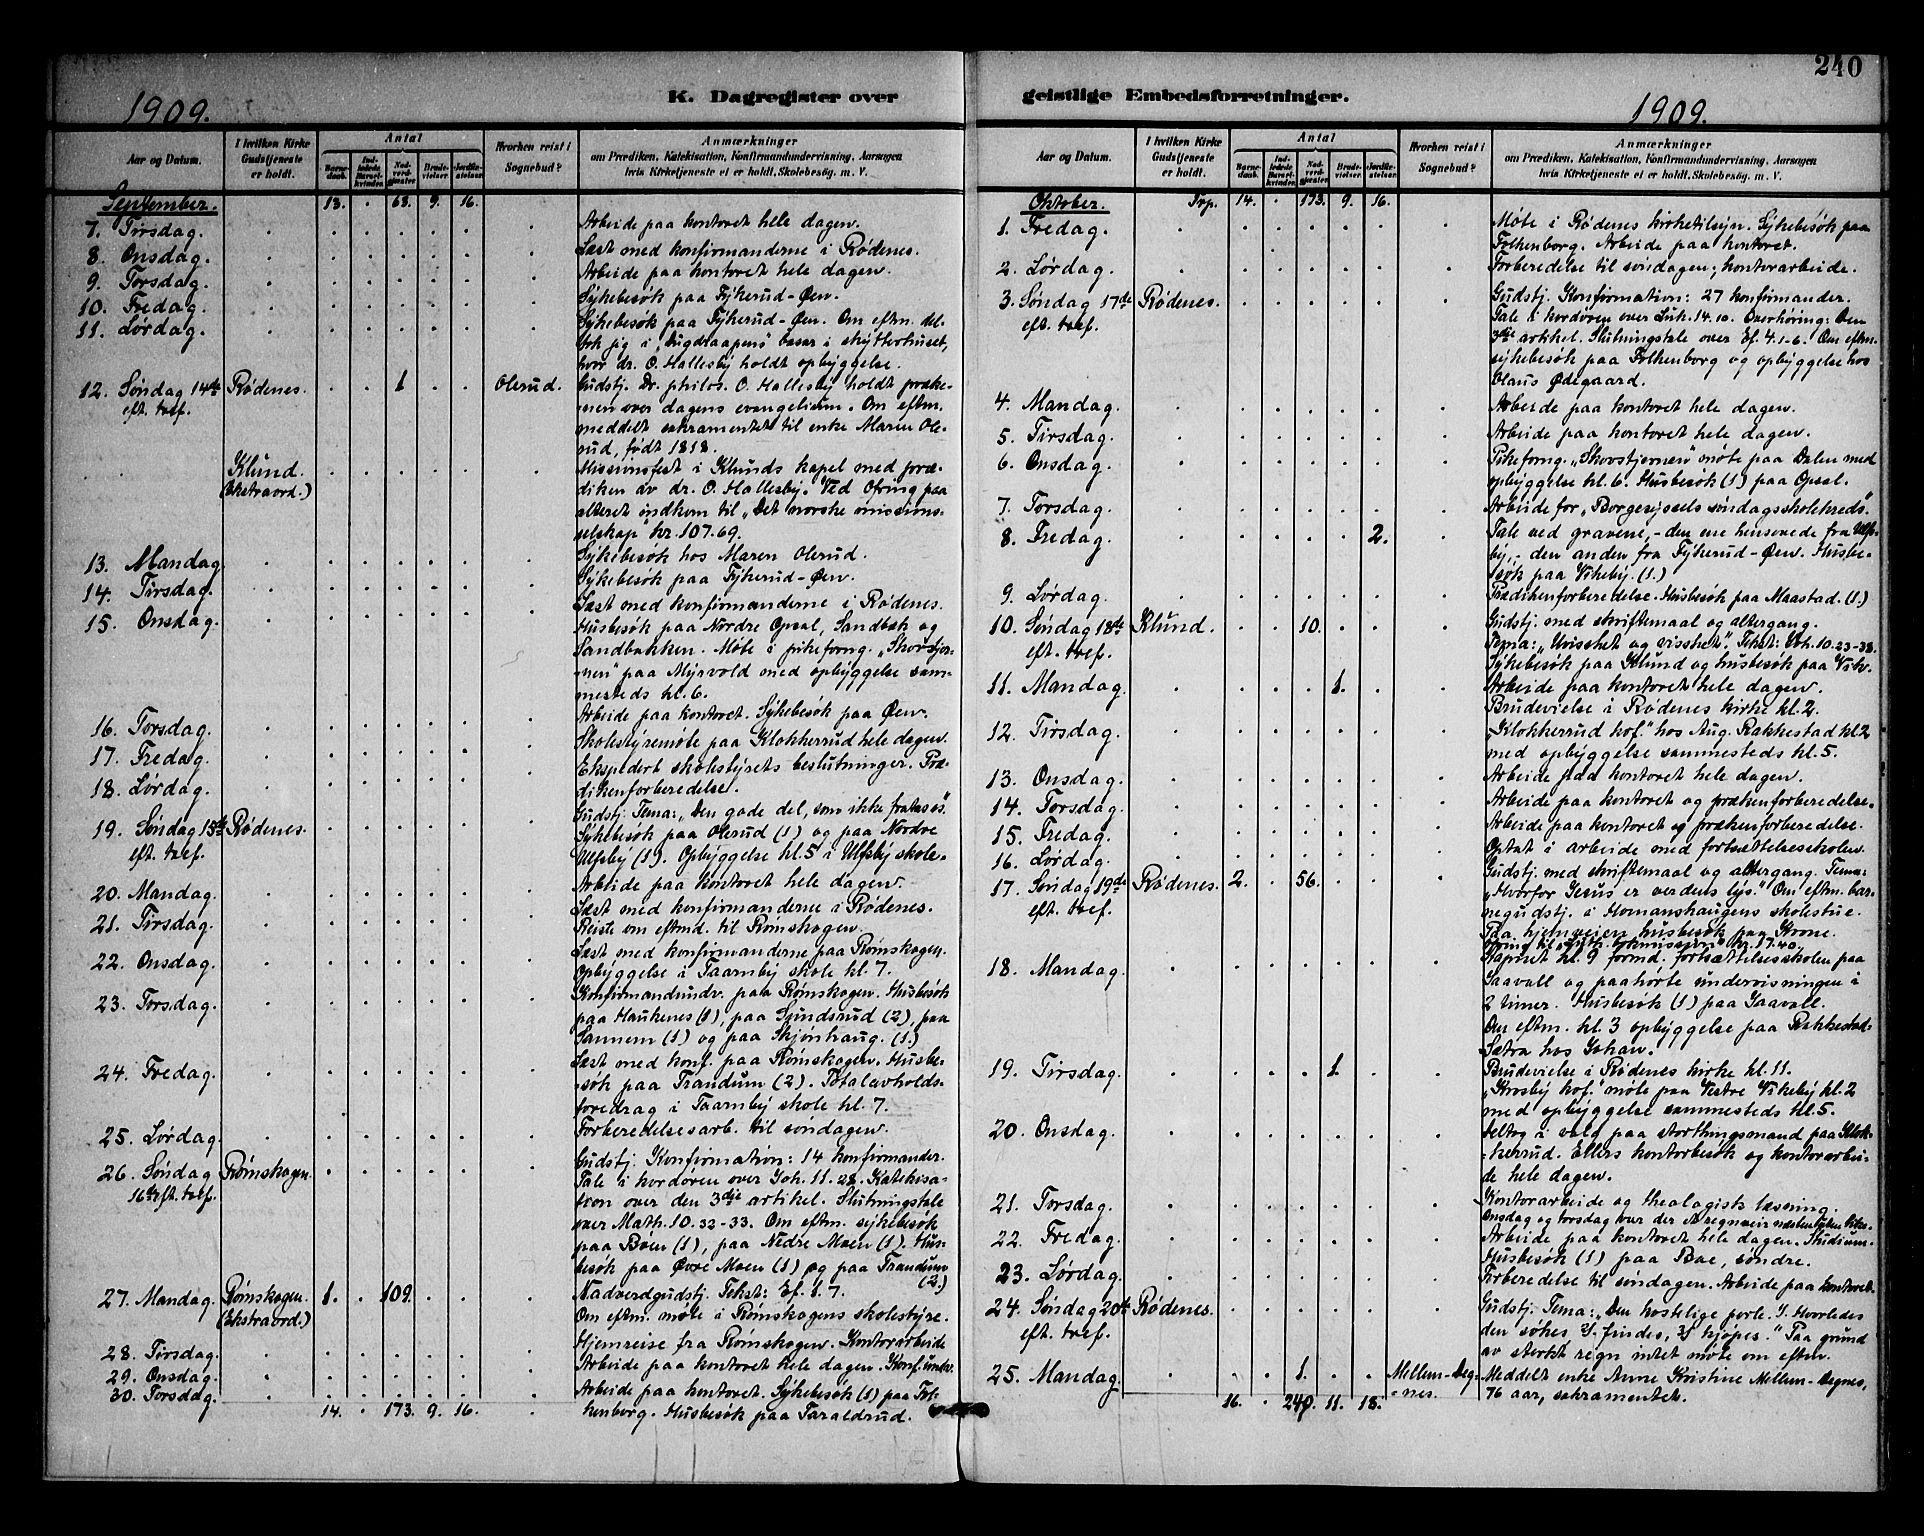 240
K. Dagregister over
geistlige Embedsforretninger.
1909.
1909.
Aar og Datum.
I hvilken Kirke Gudstjeneste er holdt.
Antal
Barnedaab.
Indledede Barselkvinder.
Nadverdgjæster.
Brudevielser.
Jordfæstelser.
Hvorhen reist i Sognebud?
Anmærkninger
om Prædiken, Katekisation, Konfirmandundervisning, Aarsagen
hvis Kirketjeneste ei er holdt, Skolebesøg, m. V.
September. 13. . 63. 9. 16.
7. Tirsdag. Arbeide paa kontoret hele dagen.
8. Onsdag. Læst med konfirmanderne i Rødenes.
9. Torsdag. Arbeide paa kontoret hele dagen.
10. Fredag. Sykebesök paa Fykerud-Øen.
11. Lørdag. Sykebesök paa Fykerud-Øen. Om eftm. del-
tok jeg i "Bugdraapens" basar i skytterhuset,
hvor dr. O. Hallesby holdt opbyggelse.
12. Søndag 14de Rødenes. 1. Olerud. Gudstj. Dr. philos. O. Hallesby holdt præke-
eft. tref. nen over dagens evangelium. Om eftm.
meddelt sakramentet til enke Maren Ole-
rud, født 1818.
Klund. Missionsfest i Klunds kapel med præ-
(Ekstraord.) diken av dr. O. Hallesby. Ved ofring paa
alteret indkom til "Det norske missions-
selskap" kr. 107.69.
13. Mandag. Sykebesök hos Maren Olerud.
14. Tirsdag. Sykebesök paa Fykerud-Øen.
Læst med konfirmanderne i Rødenes.
15. Onsdag. Husbesök paa Nordre Opsal, Sandbæk og
Sandbakken. Møte i pikeforng. "Skovstjer-
nen" paa Myrvold med opbyggelse sam-
mesteds kl. 6.
16. Torsdag. Arbeide paa kontoret. Sykebesök paa Øen.
17. Fredag. Skolestyremøte paa Klokkerrud hele dagen.
18. Lørdag. Ekspedert skolestyrets beslutninger. Præ-
dikenforberedelse.
19. Søndag 15de Rødenes. Gudstj. Tema: "Den gode del, som ikke fratages".
eft. tref. Sykebesök paa Olerud (1) og paa Nordre
Ulfsby (1). Opbyggelse kl. 5 i Ulfsby skole.
20. Mandag. Arbeide paa kontoret hele dagen.
21. Tirsdag. Læst med konfirmanderne i Rødenes.
Reiste om eftmd. til Rømskogen.
22. Onsdag. Læst med konfirmanderne paa Rømskogen.
Opbyggelse i Taarnby skole kl. 7.
23. Torsdag. Konfirmandundv. paa Rømskogen. Husbesök
paa Haukenes (1), paa Sundsrud (2), paa
Sannem (1) og paa Skjønhaug. (1.)
24. Fredag. Læst med konf. paa Rømskogen. Husbe-
sök paa Trandum (2). Totalavholds-
foredrag i Taarnby skole kl. 7.
25. Lørdag. Forberedelsesarb. til søndagen.
26. Søndag Rømskogen. Gudstj. Konfirmation: 14 konfirmander.
16de eft. tref. Tale i kordøren over Joh. 11. 28. Katekisa-
tion over den 3die artikel. Slutningstale
over Math. 10. 32-33. Om eftm. sykebesök
paa Bøen (1), paa Nedre Moen (1). Hus-
besök paa Øvre Moen (1) og paa Trandum
(2.)
27. Mandag. Rømskogen 1. . 109. Nadverdgudstj. Tekst: Ef. 1. 7.
(Ekstraord.) Om eftm. møte i Rømskogens skolestyre.
28. Tirsdag. Hjemreise fra Rømskogen. Kontorarbeide
29. Onsdag. Arbeide paa kontoret hele dagen. Konf.undv.
30. Torsdag. Arbeide paa kontoret. Sykebesök (1) paa Fol-
kenborg. Husbesök paa Taraldrud.
14. . 173. 9. 16.
Aar og Datum.
I hvilken Kirke Gudstjeneste er holdt.
Antal
Barnedaab.
Indledede Barselkvinder.
Nadverdgjæster.
Brudevielser.
Jordfæstelser.
Hvorhen reist i Sognebud?
Anmærkninger
om Prædiken, Katekisation, Konfirmandundervisning, Aarsagen
hvis Kirketjeneste ei er holdt, Skolebesøg, m. V.
Oktober. Trp. 14. . 173. 9. 16.
1. Fredag. Møte i Rødenes kirketilsyn. Sykebesök paa
Folkenborg. Arbeide paa kontoret.
2. Lørdag. Forberedelse til søndagen; kontorarbeide.
3. Søndag 17de Rødenes. Gudstj. Konfirmation: 27 konfirmander.
eft. tref. Tale i kordøren over Luk. 14. 10. Overhøring: Den
3die artikkel. Slutningstale over Ef. 4. 1-6. Om eftm.
sykebesök paa Folkenborg og opbyggelse hos
Olaus Ødegaard.
4. Mandag. Arbeide paa kontoret hele dagen.
5. Tirsdag. Arbeide paa kontoret hele dagen.
6. Onsdag. Pikeforng. "Skovstjernen" møte paa Dalen med
opbyggelse kl. 6. Husbesök (1) paa Opsal.
7. Torsdag. Arbeide for "Borgesyssels søndagsskolekreds".
8. Fredag. 2. Tale ved gravene, - den ene hensovede fra Ulfs-
by, - den anden fra Fykerud-Øen. Husbe-
sök paa Vikeby. (1.)
9. Lørdag. Prædikenforberedelse. Husbesök paa Maastad. (1.)
10. Søndag 18de Klund. 10. Gudstj. med skriftemaal og altergang.
eft. tref. Tema: "Uvisshet og visshet". Tekst: Joh. 10. 23-38.
Sykebesök paa Klund og husbesök paa Vik.
11. Mandag. 1. Arbeide paa kontoret hele dagen.
Brudevielse i Rødenes kirke kl. 2.
12. Tirsdag. "Klokkerrud kof." hos Aug. Rakkestad kl. 2
med opbyggelse sammesteds kl. 5.
13. Onsdag. Arbeide paa kontoret hele dagen.
14. Torsdag. Arbeide paa kontoret og prækenforberedelse.
15. Fredag. Arbeide paa kontoret og prækenforberedelse.
16. Lørdag. Optat i arbeide med fortsættelsesskolen.
17. Søndag 19de Rødenes. 2. . 56. Gudstj. med skriftemaal og altergang. Tema:
eft. tref. "Hvorfor Jesus er verdens lys." Om eftm. bar-
negudstj. i Homanshaugens skolestue.
Paa hjemveien husbesök paa Krone.
Ofring til kr. 17.40.
18. Mandag. Aapnet kl. 9 formd. fortsættelsesskolen paa
Gaavall og paahørte undervisningen i
2 timer. Husbesök (1) paa Gaavall.
Om eftm. kl. 3 opbyggelse paa Rakkestad-
Sætra hos Johan.
19. Tirsdag. 1. Brudevielse i Rødenes kirke kl. 11.
"Krosby kof." møte paa Vestre Vikeby kl. 2
med opbyggelse sammesteds kl. 5.
20. Onsdag. Deltog i valg paa storthingsmand paa Klok-
kerrud. Ellers kontorbesök og kontorarbei-
de hele dagen.
21. Torsdag. Kontorarbeide og theologisk læsning.
Onsdag og torsdag var der regnveir næsten uten like.
22. Fredag. Arbeide paa kontoret hele dagen. Studium.
Husbesök (1) paa Boe, søndre.
23. Lørdag. Forberedelse til søndagen. Arbeide paa kontoret.
24. Søndag 20de Rødenes. Gudstj. Tema: "Den kostelige perle. 1. Hvorledes
eft. tref. den søkes 2, findes, 3, kjøpes." Paa grund
av sterkt regn intet møte om eftm.
25. Mandag. 1. Mellem-Deg- Meddelt enke Anne Kristine Mellem-Degnes,
nes. 76 aar, sakramentet.
16. . 240. 11. 18.